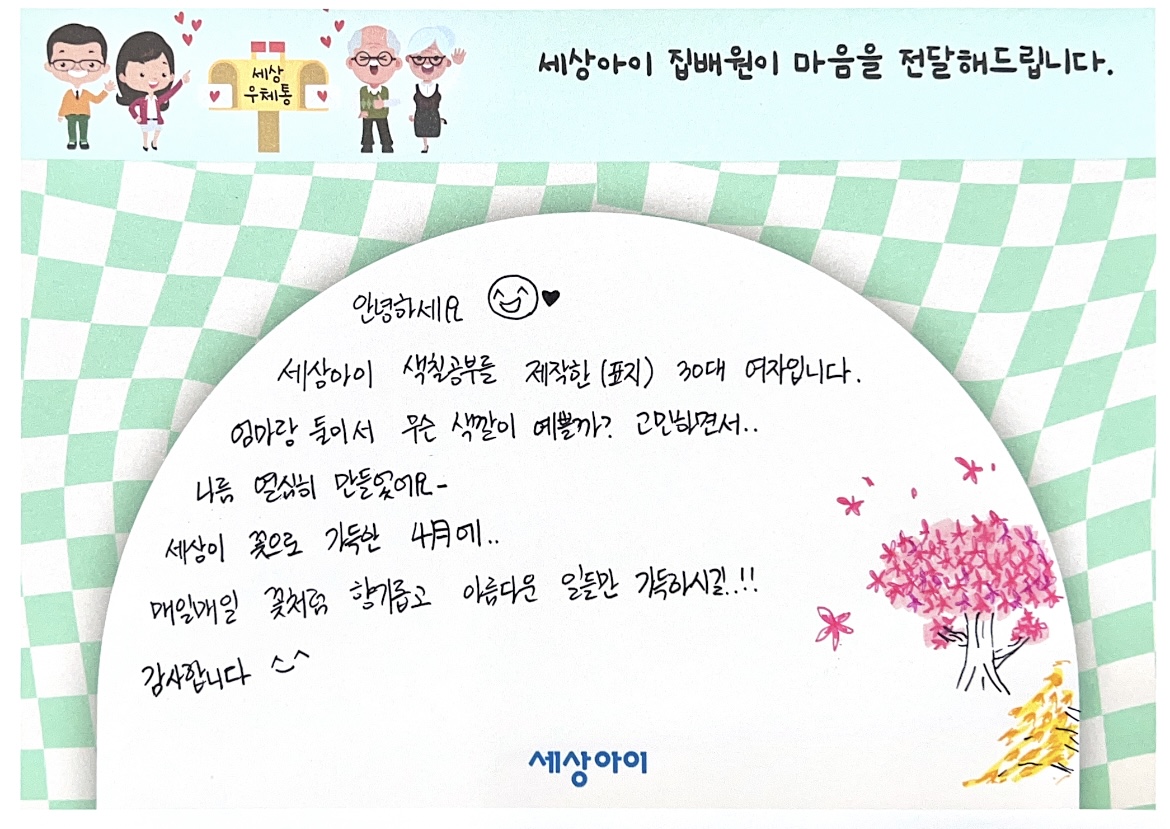 세상아이 집배원이 마음을 전달해드립니다.
세상
우체통
안녕하세요
세상아이 색칠공부를 제작한 (표지) 30대 여자입니다.
엄마랑 둘이서 무슨 색깔이 예쁠까? 고민하면서..
나름 열심히 만들었어요~
세상이 꽃으로 가득한 4月에..
매일매일 꽃처럼 향기롭고 아름다운 일들만 가득하시길..!!
감사합니다 ^^
세상아이